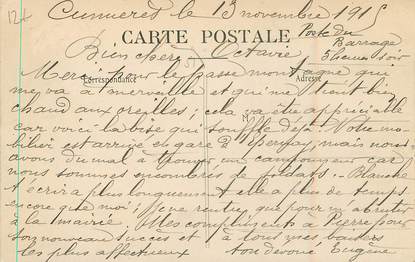 Cumières le 13 novembre 1915
CARTE POSTALE
Poste du
Barrage
5 heures soir
Bien chère Octavie
Correspondance
Adresse
Merci pour le passe montagne qui
me va à merveille et qui me tient bien
chaud aux oreilles ; cela va être appréciable
car voici la bise qui souffle déjà. Votre mo-
bilier est arrivé en gare d'Epernay, mais nous
avons du mal à trouver un camionneur car
nous sommes encombrés de soldats. Blanche
t'écrira plus longuement elle a plus de temps
encore que moi ; je ne rentre que pour m'abrutir
à la mairie. Mes compliments à Pierre pour
son nouveau succès et à tous mes baisers
les plus affectueux
ton dévoué Eugène